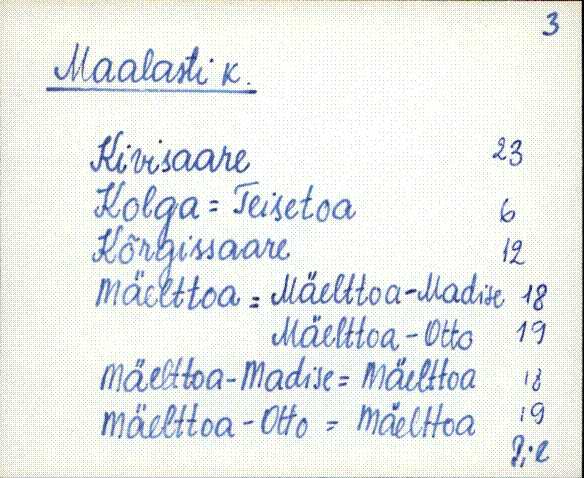 3
Maalasti k.
Kivisaare 23
Kolga = Teisetoa 6
Kõrgissaare 12
Mäelttoa = Mäelttoa-Madise 18
Mäelttoa - Otto 19
Mäelttoa-Madise = Mäelttoa 18
Mäelttoa - Otto = Mäelttoa 19